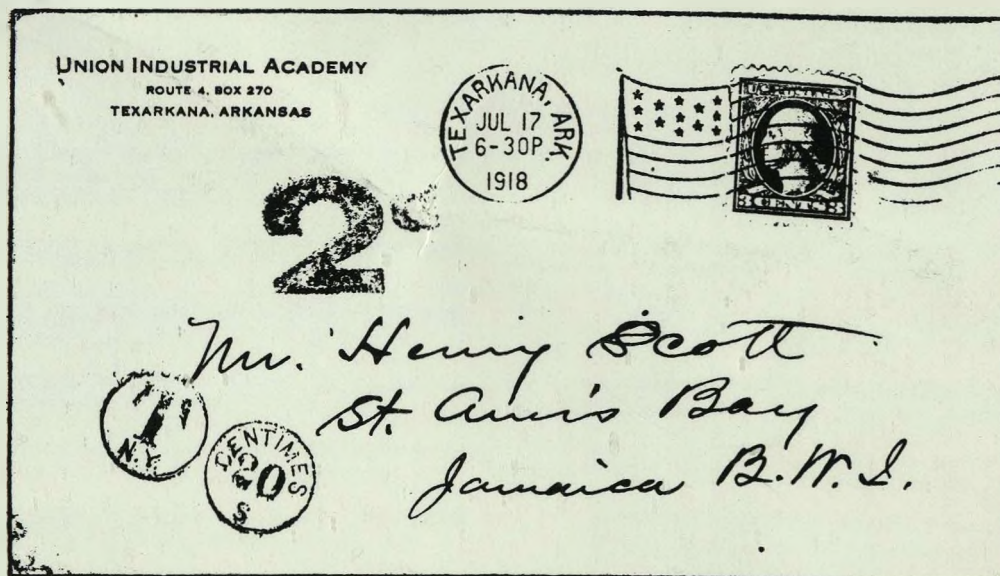 UNION INDUSTRIAL ACADEMY
ROUTE 4, BOX 270
TEXARKANA, ARKANSAS
TEXARKANA, ARK.
JUL 17
6-30P.
1918
3 CENTS 3
2
Mr. Henry Scott
St. Ann's Bay
Jamaica B.W.I.
T
N.Y.
CENTIMES
20
S